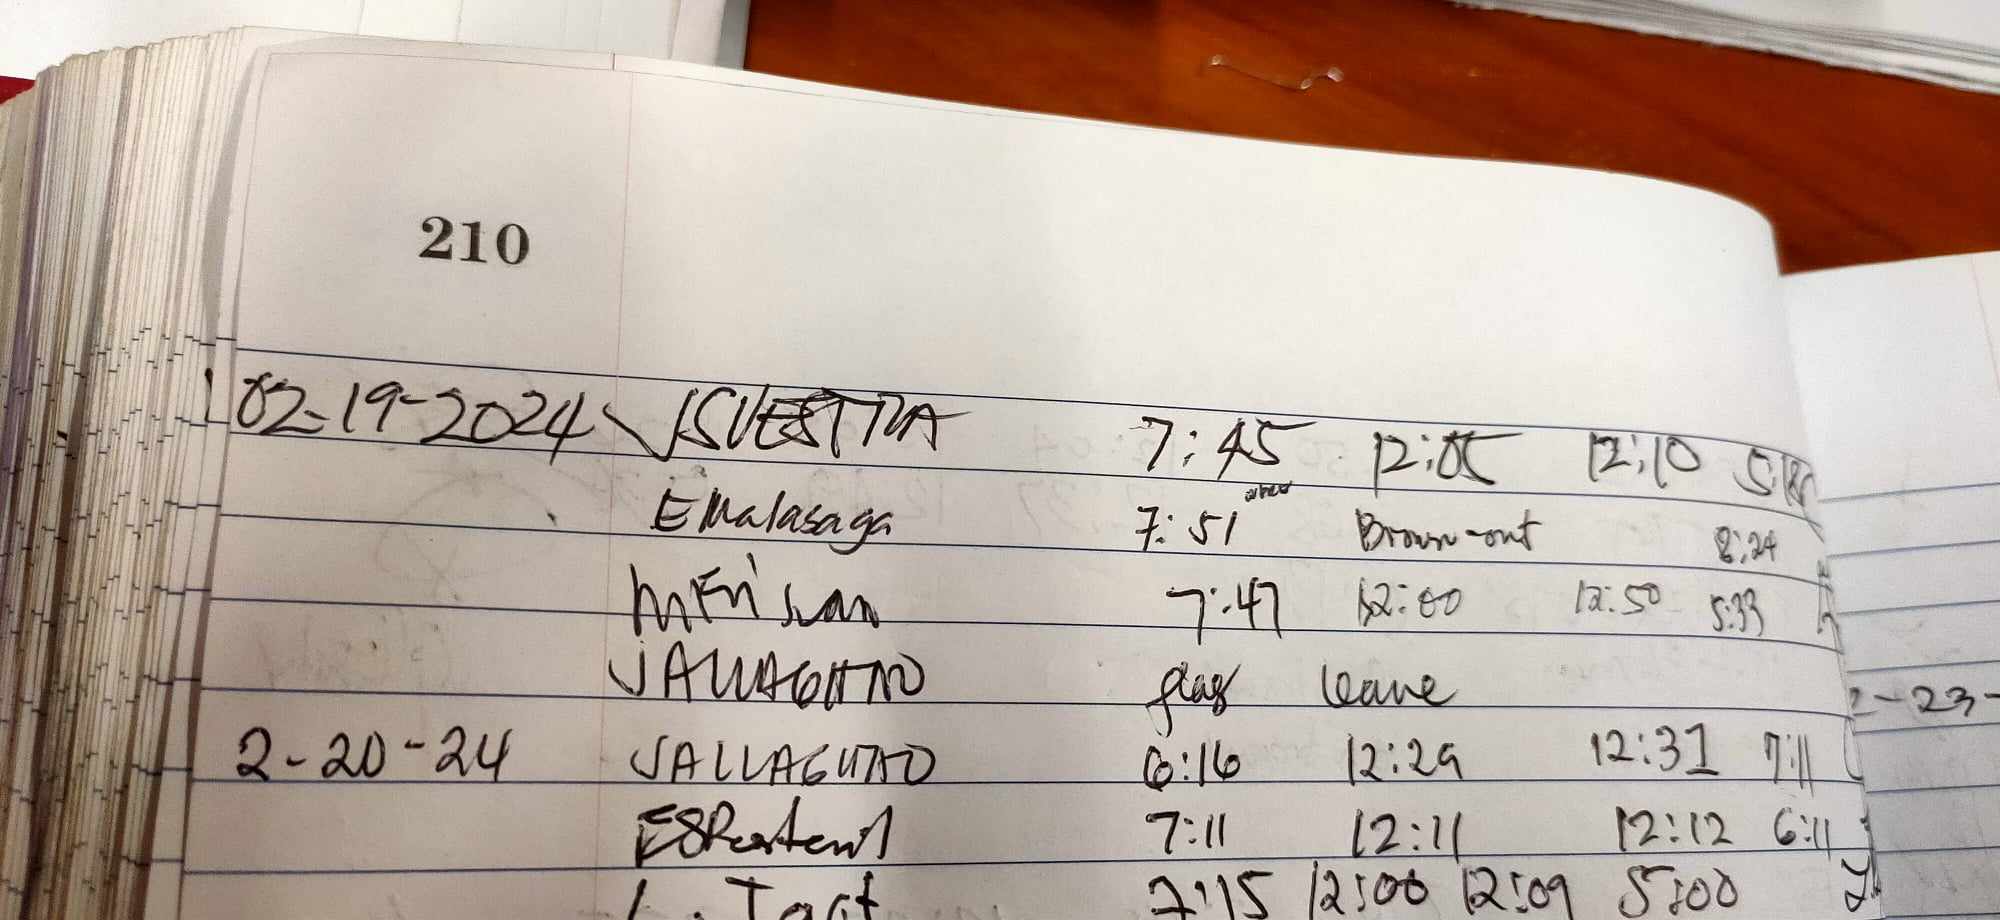 210
02-19-2024 JSVESTRA 7:45 12:05 12:10
EMalasaga 7:51 Brown-out 8:24
7:47 12:00 12:50 5:33
JALLAGUNO flag leave
2-20-24 JALLAGUNO 6:16 12:29 12:31 7:11
7:11 12:11 12:12 6:11
7:15 12:00 12:09 5:00
2-23-